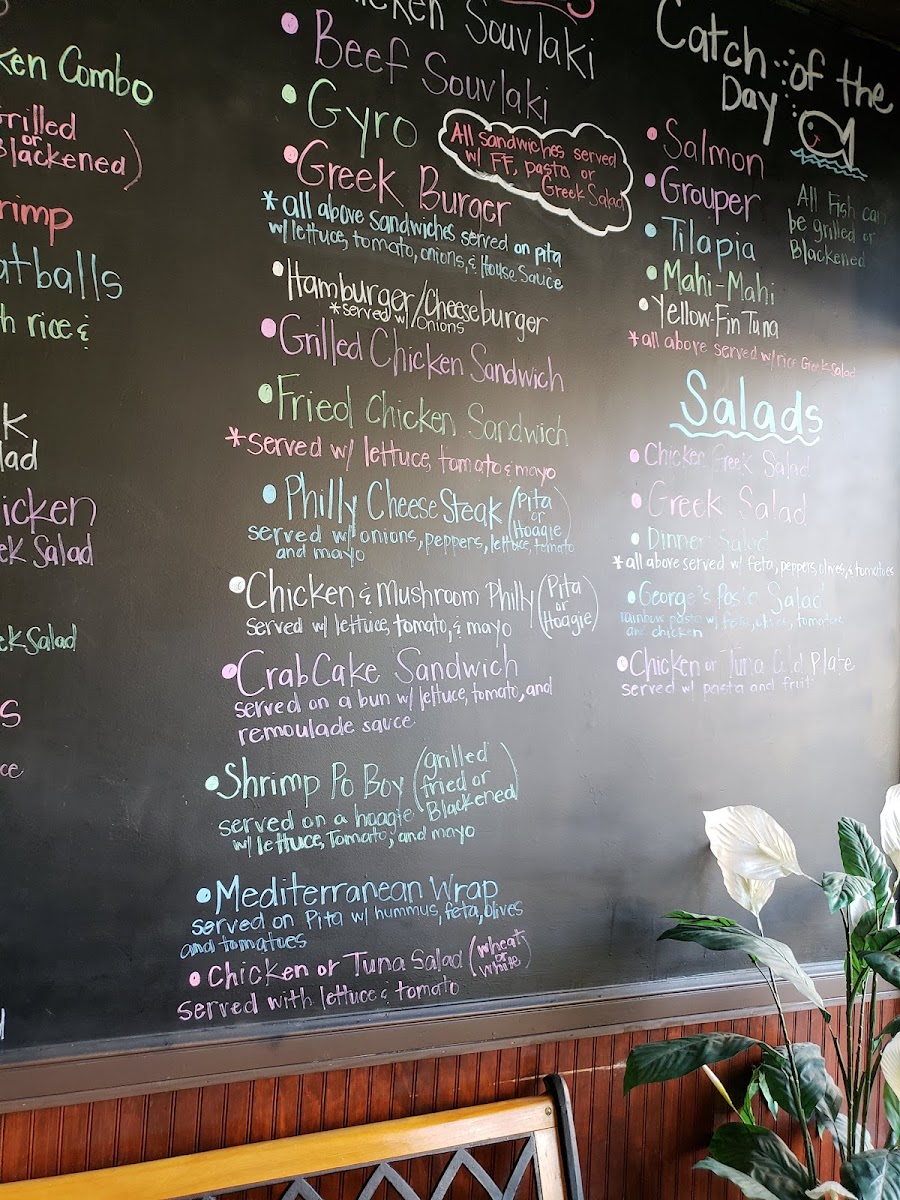 Combo
Grilled
or
Blackened)
atballs
rice &
Salad
Greek Salad
Chicken Souvlaki
• Beef Souvlaki
• Gyro
All sandwiches served
w/ FF, pasta or
Greek Salad
• Greek Burger
*all above sandwiches served on pita
w/lettuce, tomato, onions, & House Sauce
• Hamburger/Cheeseburger
*served w/ onions
• Grilled Chicken Sandwich
• Fried Chicken Sandwich
*served w/ lettuce, tomato & mayo
• Philly Cheese Steak (Pita
or
Hoagie)
served w/ onions, peppers, lettuce, tomato
and mayo
• Chicken & Mushroom Philly (Pita
or
Hoagie)
served w/ lettuce, tomato, & mayo
• Crab Cake Sandwich
served on a bun w/ lettuce, tomato, and
remoulade sauce
• Shrimp Po Boy (grilled
fried or
Blackened)
served on a hoagie
w/ lettuce, Tomato, and mayo
• Mediterranean Wrap
served on Pita w/ hummus, feta, olives
and tomatoes
• Chicken or Tuna Salad (wheat
or
white)
served with lettuce & tomato
Catch of the
Day
• Salmon
• Grouper
• Tilapia
• Mahi-Mahi
• Yellow-Fin Tuna
All Fish can
be grilled or
Blackened
*all above served w/rice Greek Salad
Salads
• Chicken Greek Salad
• Greek Salad
• Dinner Salad
*all above served w/ feta, peppers, olives, & tomatoes
• George's Pasta Salad
rainbow pasta w/ feta, olives, tomatoes
and chicken
• Chicken or Tuna Cold Plate
served w/ pasta and fruit